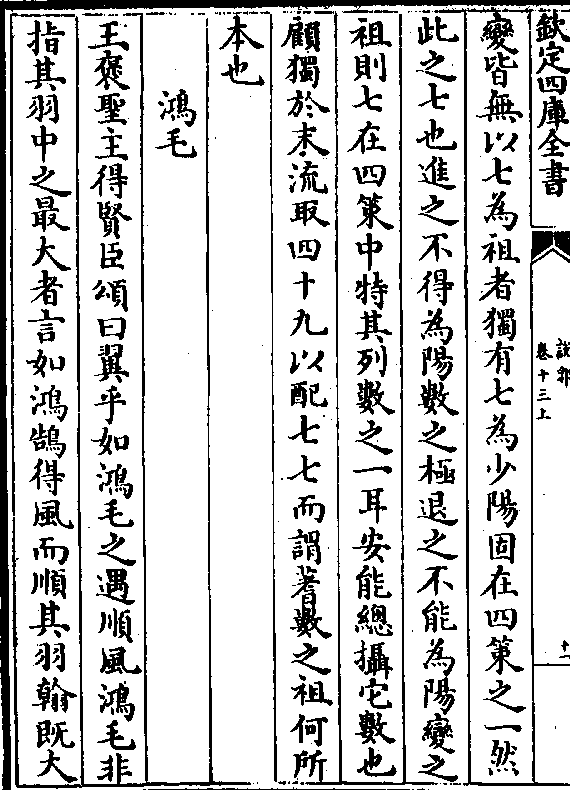 欽定四庫全書
說郛
卷十三上
十一
變皆無以七為祖者獨有七為少陽固在四策之一然
此之七也進之不得為陽數之極退之不能為陽變之
祖則七在四策中特其列數之一耳安能總攝它數也
顧獨於末流取四十九以配七七而謂蓍數之祖何所
本也
鴻毛
王褒聖主得賢臣頌曰翼乎如鴻毛之遇順風鴻毛非
指其羽中之最大者言如鴻鵠得風而順其羽翰既大